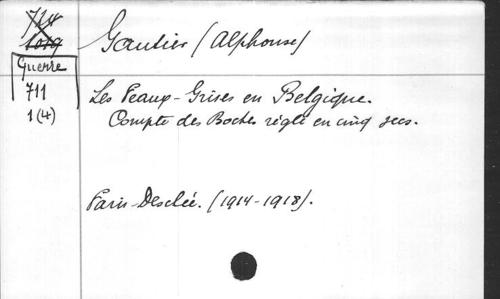 714
1019
Gautier (Alphonse)
Guerre
711
1(4)
Les Peaux-Grises en Belgique.
Compte des Boches réglé en cinq secs.
Paris Desclée. (1914-1918).